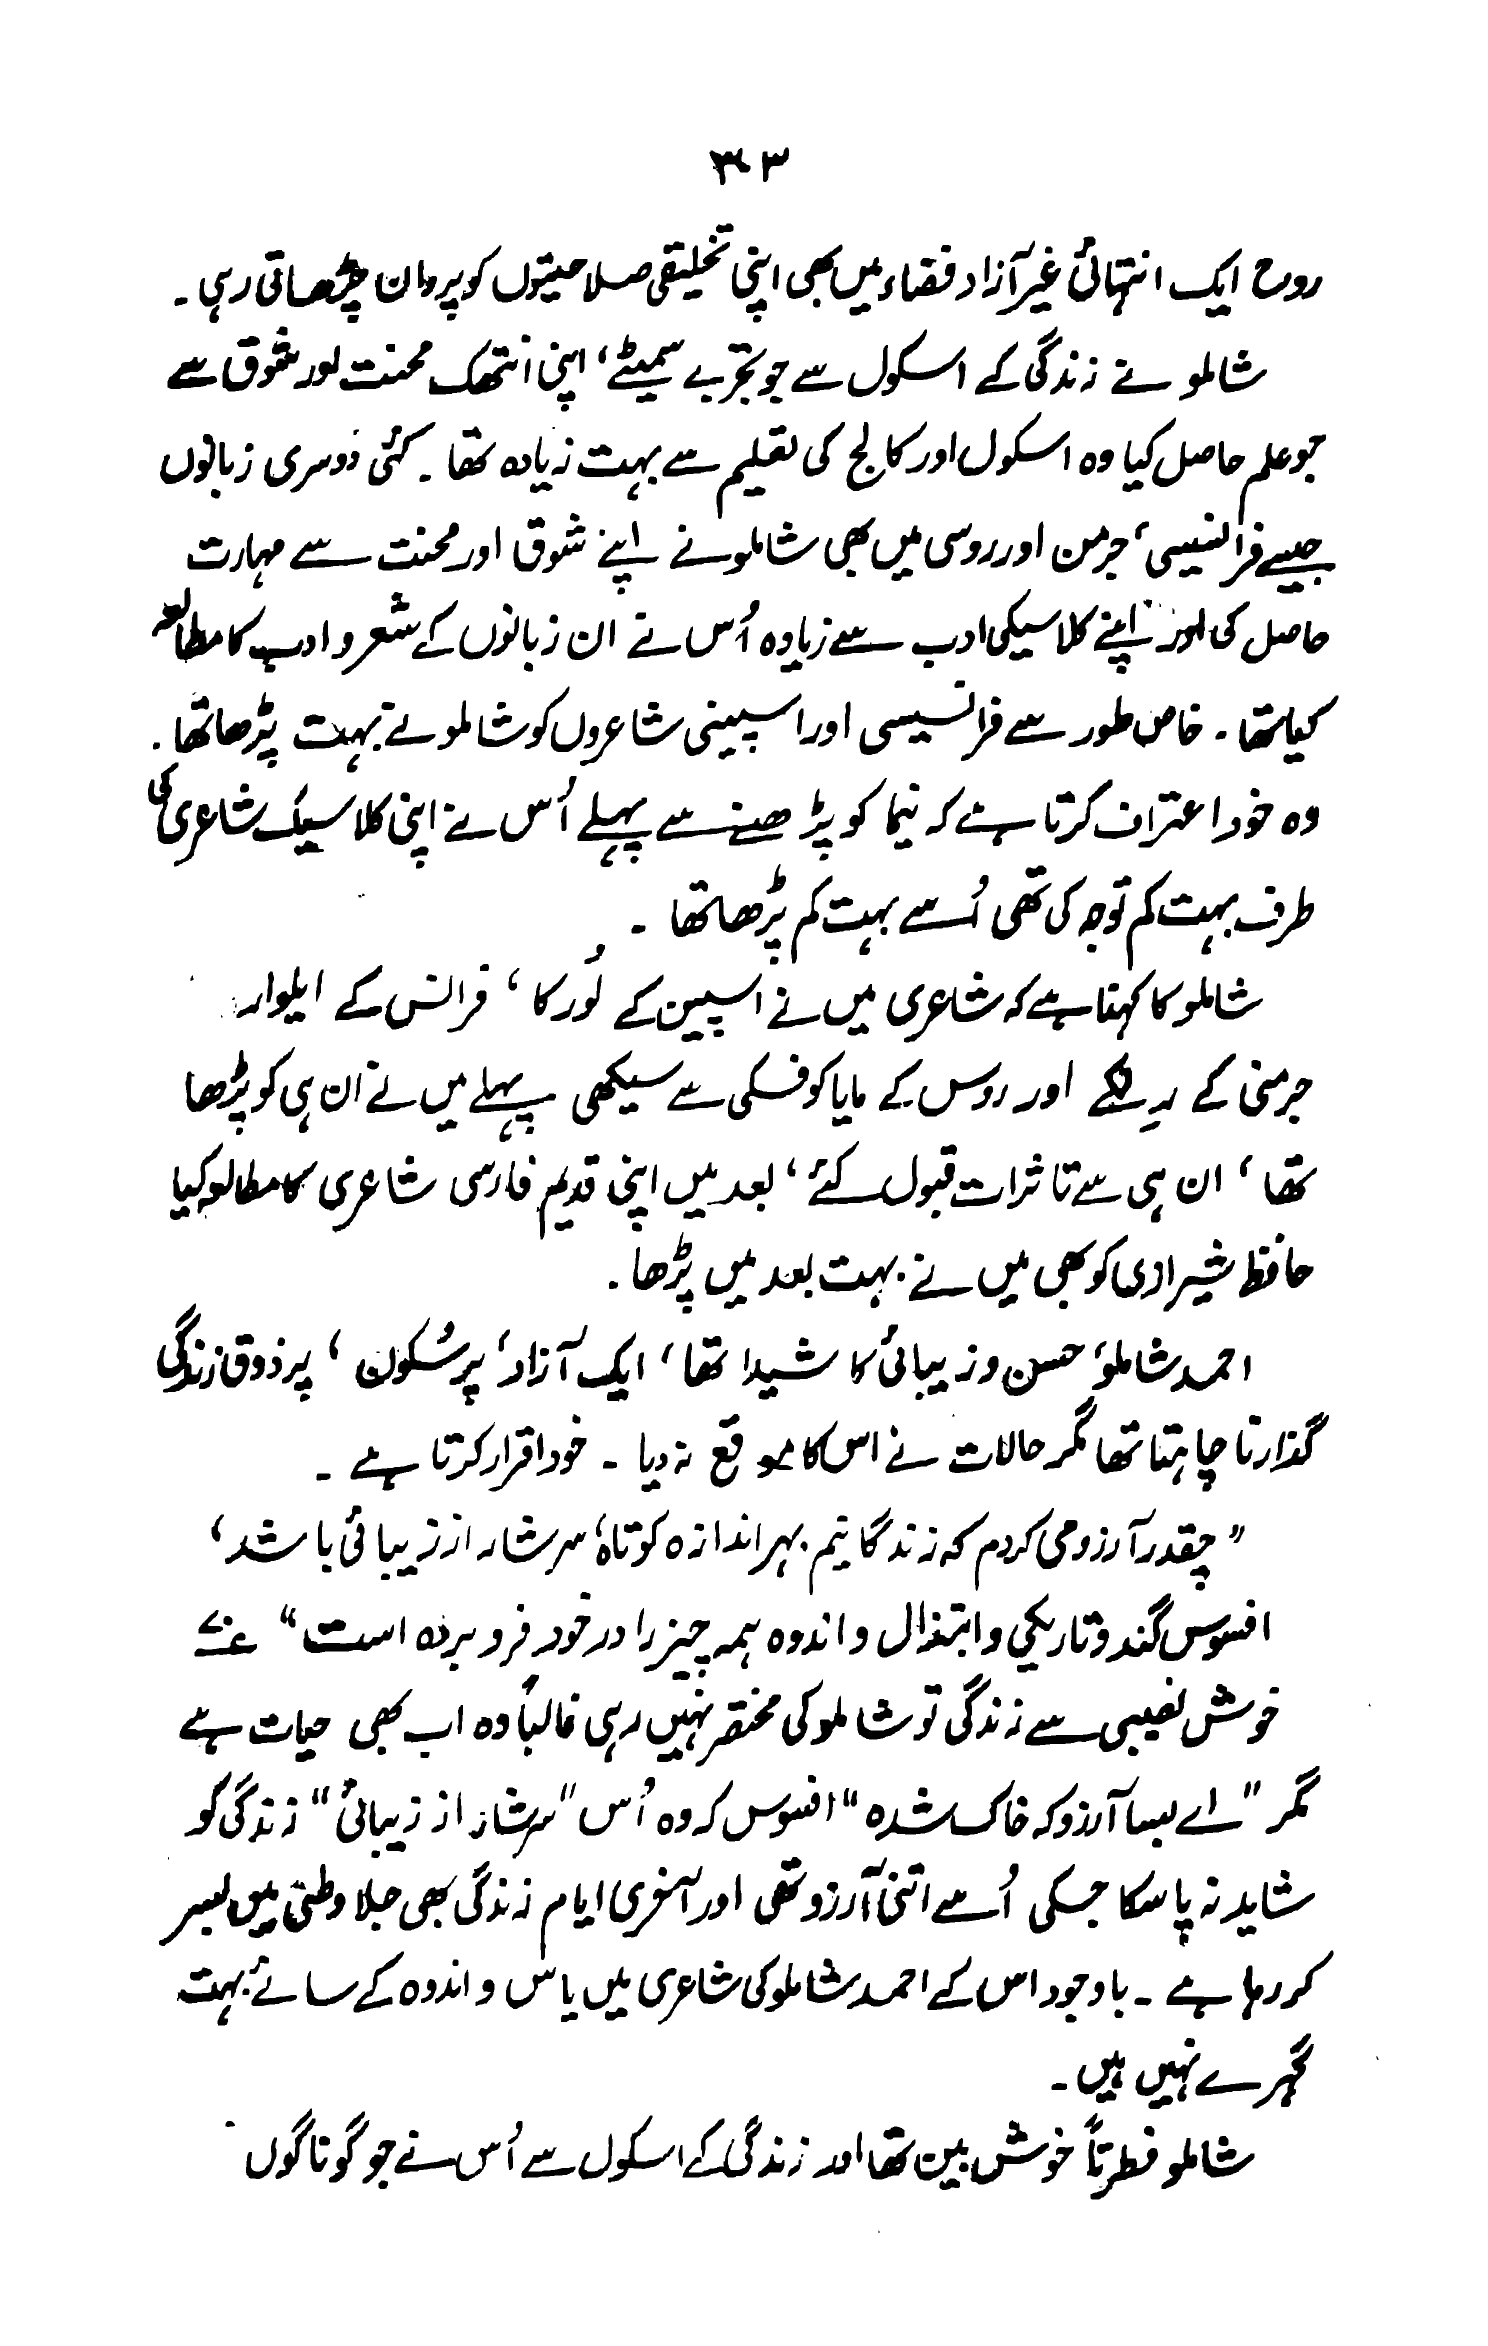 روح ایک انتہائی غیر آزاد فضاء میں بھی اپنی تخلیقی صلاحیتوں کو پروان چڑھاتی رہی ۔
شاملو نے زندگی کے اسکول سے جو تجربے سمیٹے، اپنی انتھک محنت اور شوق سے
جو علم حاصل کیا وہ اسکول اور کالج کی تعلیم سے بہت زیادہ تھا ۔ کئی دوسری زبانوں
جیسے فرانسیسی، جرمن اور روسی میں بھی شاملو نے اپنے شوق اور محنت سے مہارت
حاصل کی اور اپنے کلاسیکی ادب سے زیادہ اُس نے ان زبانوں کے شعر و ادب کا مطالعہ
کیا تھا ۔ خاص طور سے فرانسیسی اور اسپینی شاعروں کو شاملو نے بہت پڑھا تھا ۔
وہ خود اعتراف کرتا ہے کہ نیما کو پڑھنے سے پہلے اُس نے اپنی کلاسیک شاعری کی
طرف بہت کم توجہ کی تھی اُسے بہت کم پڑھا تھا ۔
شاملو کا کہنا ہے کہ شاعری میں نے اسپین کے لُورکا، فرانس کے ایلوار
جرمنی کے رلکے اور روس کے مایاکوفسکی سے سیکھی پہلے میں نے ان ہی کو پڑھا
تھا، ان ہی سے تاثرات قبول کئے، بعد میں اپنی قدیم فارسی شاعری کا مطالعہ کیا
حافظ شیرازی کو بھی میں نے بہت بعد میں پڑھا ۔
احمد شاملو، حسن و زیبائی کا شیدا تھا، ایک آزاد، پرسُکون، پر ذوق زندگی
گذارنا چاہتا تھا مگر حالات نے اس کا موقع نہ دیا ۔ خود اقرار کرتا ہے ۔
"چقدر آرزو می کردم کہ زندگانیم بہر اندازہ کوتاہ، سرشار از زیبائی باشد،
افسوس گند و تاریکی و ابتذال و اندوہ ہمہ چیز را در خود فرو بردہ است"
خوش نصیبی سے زندگی تو شاملو کی مختصر نہیں رہی غالباً وہ اب بھی حیات ہے
مگر "اے بسا آرزو کہ خاک شدہ" افسوس کہ وہ اُس "سرشار از زیبائی" زندگی کو
شاید نہ پا سکا جسکی اُسے اتنی آرزو تھی اور آخری ایام زندگی بھی جلا وطنی میں بسر
کر رہا ہے ۔ باوجود اس کے احمد شاملو کی شاعری میں یاس و اندوہ کے سائے بہت
گہرے نہیں ہیں ۔
شاملو فطرتاً خوش بین تھا اور زندگی کے اسکول سے اُس نے جو گوناگوں